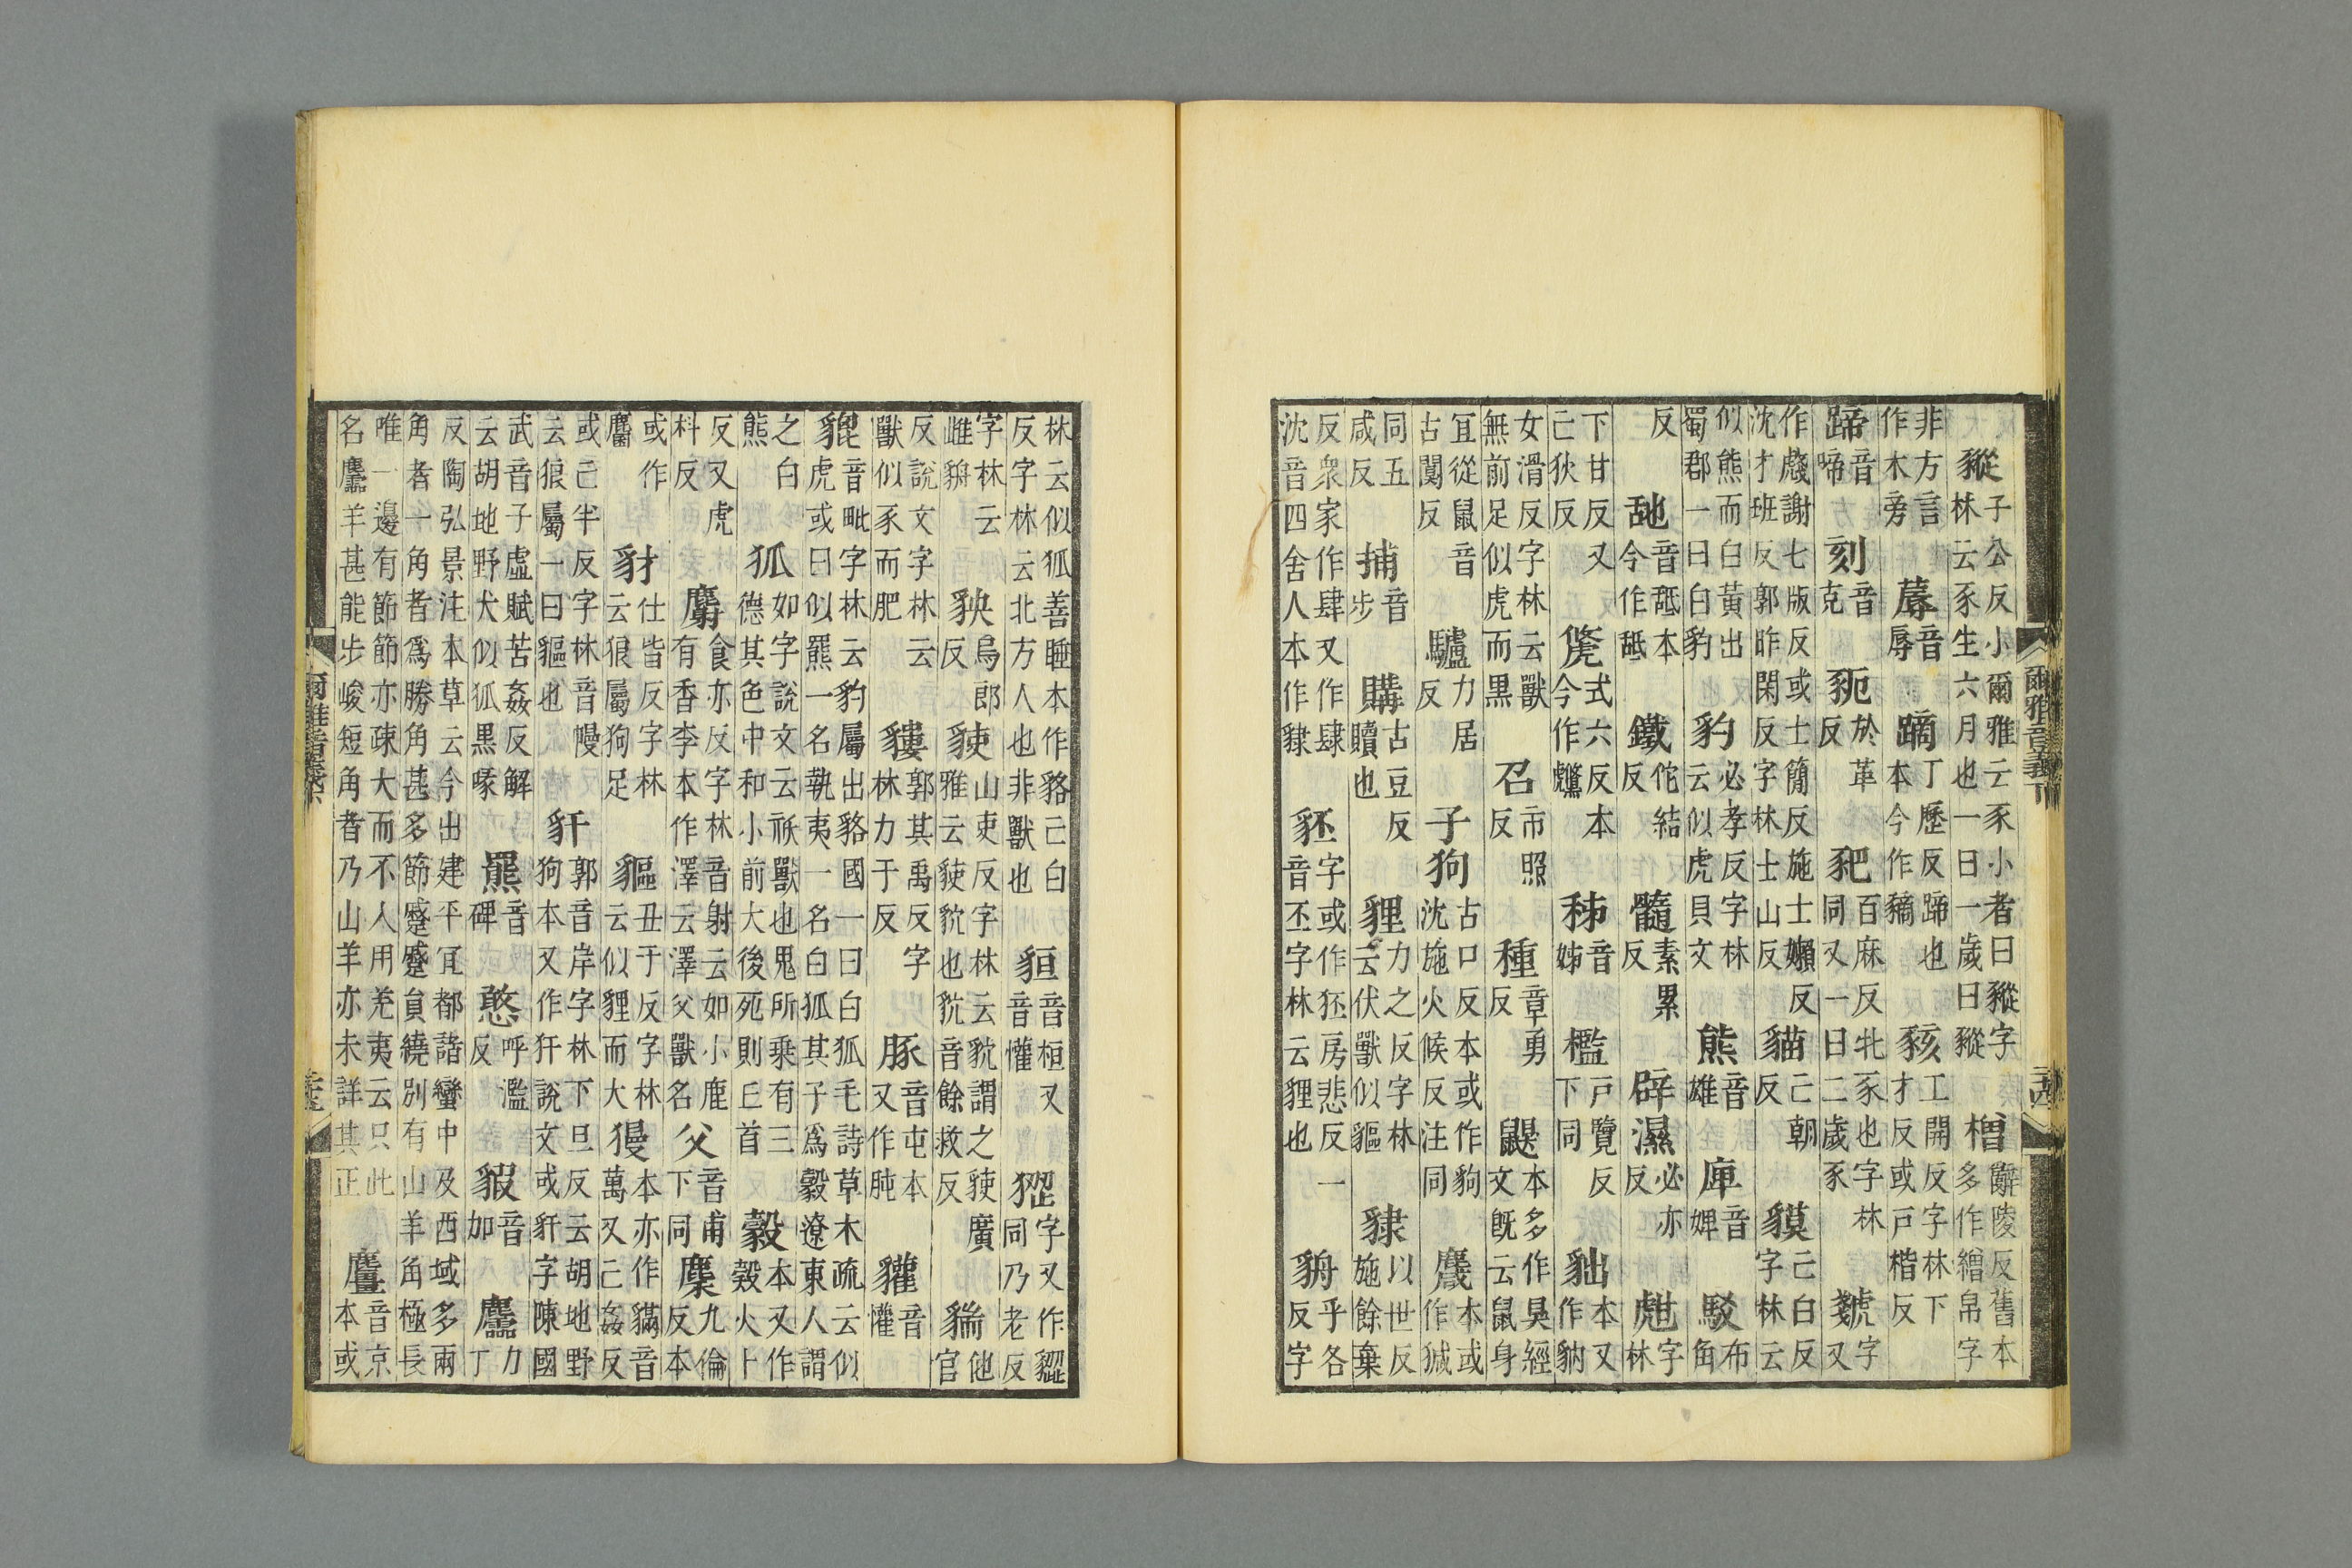 豵子公反小爾雅云豕小者曰豵字林云豕生六月也一曰一歲曰豵橧辭陵反舊本多作繒帛字
非方言作木旁蓐音辱蹢丁歷反蹄也本今作豴豥工開反字林下才反或戶楷反
蹄音啼刻音克豟於革反豝百麻反牝豕也字林同又一曰二歲豕虥字又
作謝七版反或士簡反施士嬾反沈才班反郭昨閑反字林士山反貓己朝反貘己白反字林云
似熊而白黃出蜀郡一曰白豹豹必孝反字林云似虎貝文熊音雄庳音婢駁布角
反䑛音舐本今作舐鐵佗結反髓素累反辟濕必亦反甝字林
下甘反又亡狄反式六反本今作虪秭音姊檻戶覽反下同貀本又作豽
女滑反字林云獸無前足似虎而黑召市照反種章勇反鼳本多作狊經文旣云鼠身
宜從鼠音古闃反驢力居反子狗古口反本或作豿沈施火候反注同麙本或作㺂
同五咸反捕音步購古豆反贖也貍力之反字林云伏獸似貙貄以世反施餘棄
反衆家作肆又作肆沈音四舍人本作貄豾字或作狉房悲反一音丕字林云貍也貈乎各反字
爾雅音義下
林云似狐善睡本作貉己白反字林云北方人也非獸也貆音桓又音懽字又作同乃老反
字林云雌貈䝘烏郎反山吏反字林云貌謂之廣雅云也音餘救反貒他官
反說文字林云獸似豕而肥貗郭其禹反字林力于反豚音屯本又作肫貛音懽
貔音毗字林云豹屬出貉國一曰白狐毛詩草木疏云似虎或曰似羆一名執夷一名白狐其子爲豰遼東人謂
之白熊狐如字說文云祅獸也鬼所乘有三德其色中和小前大後死則丘首豰本又作㝅火卜
反又虎料反麝食亦反字林音射云如小鹿有香李本作澤云澤父獸名父音甫下同麇九倫反本
或作麕豺仕皆反字林云狼屬狗足貙丑于反字林云似貍而大獌本亦作䝢音萬又亡姦反
或亡半反字林音幔云狼屬一曰貙也豻郭音岸字林下旦反云胡地野狗本又作犴說文或豻字陳國
武音子虛賦苦姦反解云胡地野犬似狐黑喙羆音碑憨呼濫反豭音加麢力丁
反陶弘景注本草云今出建平冝都諸蠻中及西域多兩角者一角者爲勝角甚多節蹙蹙員繞別有山羊角極長
唯一邊有節節亦疎大而不入用羌夷云只此名麢羊甚能步峻短角者乃山羊亦未詳其正麠音京本或